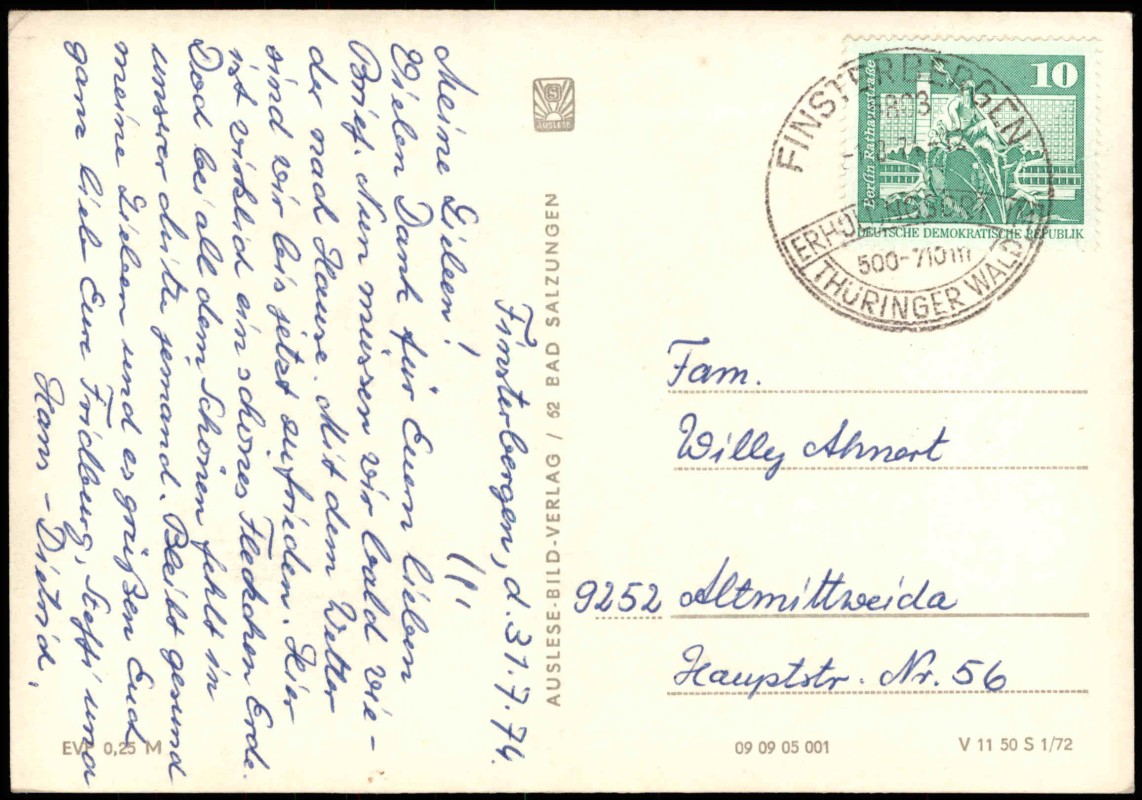 Finsterbergen, d. 31.7.74.
Meine Lieben!
Vielen Dank für Euern lieben
Brief. Nun müssen wir bald wie-
der nach Hause. Mit dem Wetter
sind wir bis jetzt zufrieden. Hier
ist wirklich ein schönes Fleckchen Erde.
Doch bei all dem Schönen fehlt in
unserer Mitte jemand. Bleibt gesund
meine Lieben und es grüßen Euch
ganz lieb Eure Friedburg, Steffi und
Hans-Dietrich.
AUSLESE
AUSLESE-BILD-VERLAG / 62 BAD SALZUNGEN
EVP 0,25 M
10
Berlin Rathausstraße
DEUTSCHE DEMOKRATISCHE REPUBLIK
FINSTERBERGEN
ERHOLUNGSORT IM
500-710m
THÜRINGER WALD
Fam.
Willy Ahnert
9252 Altmittweida
Hauptstr. Nr. 56
09 09 05 001
V 11 50 S 1/72